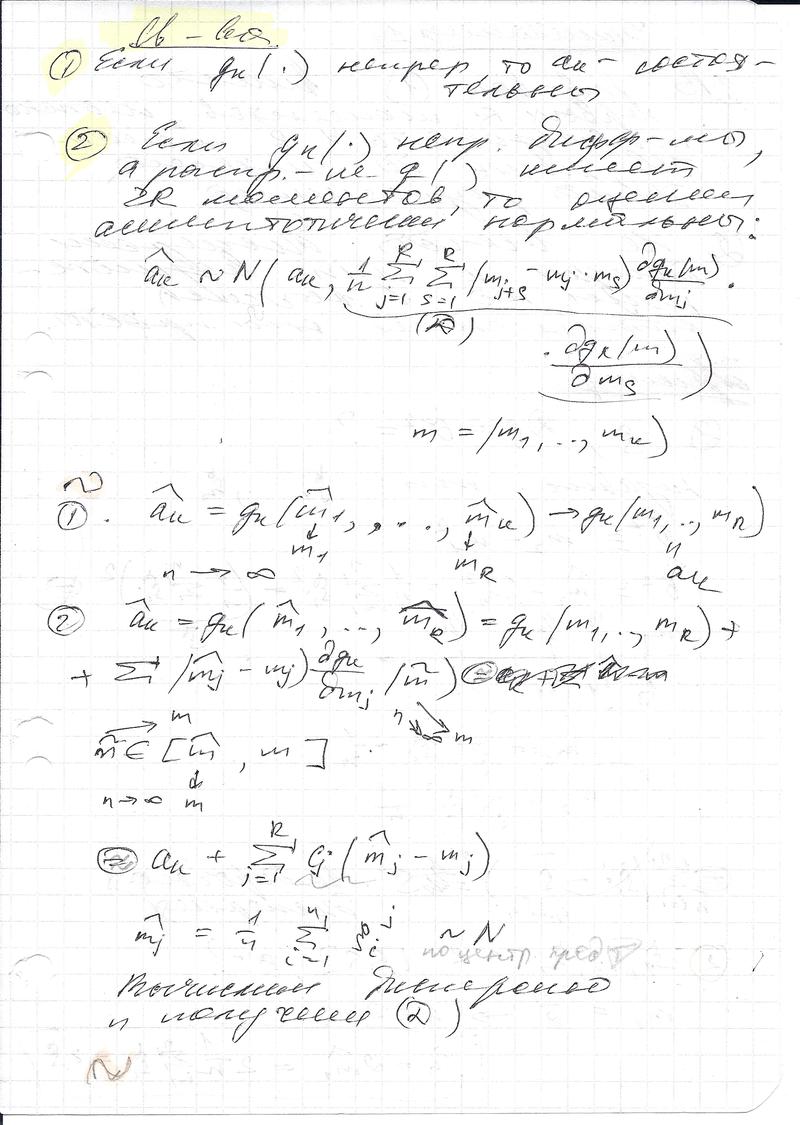 Св-ва
① Если gк(·) непрер то aк- состоя-
тельны
② Если gк(·) непр. дифф-мы,
а распр.-ие q() имеет
2R моментов, то оценки
асимптотически нормальны:
âк ~ N( aк, 1/n ∑_{j=1}^{R} ∑_{s=1}^{R} (m_{j+s} - mj · ms) ∂gк(m)/∂mj ·
· ∂gк(m)/∂ms )
m = (m1, .., mк)
① . âк = gк(m̂1, , . . ., m̂к) → gк(m1, .., mR)
↓ m1 ↓ mR " aк
n → ∞
② âк = gк( m̂1, .., m̂R) = gк (m1, .., mR) +
+ ∑ (m̂j - mj) ∂gк/∂mj (m̃) =
m̃ ∈ [m̂, m]
n→∞ m
= aк + ∑_{j=1}^{R} Cj (m̂j - mj)
m̂j = 1/n ∑_{i=1}^{n} ξi^j ~ N
по центр пред т
Вычислим дисперсию
и получим (2)